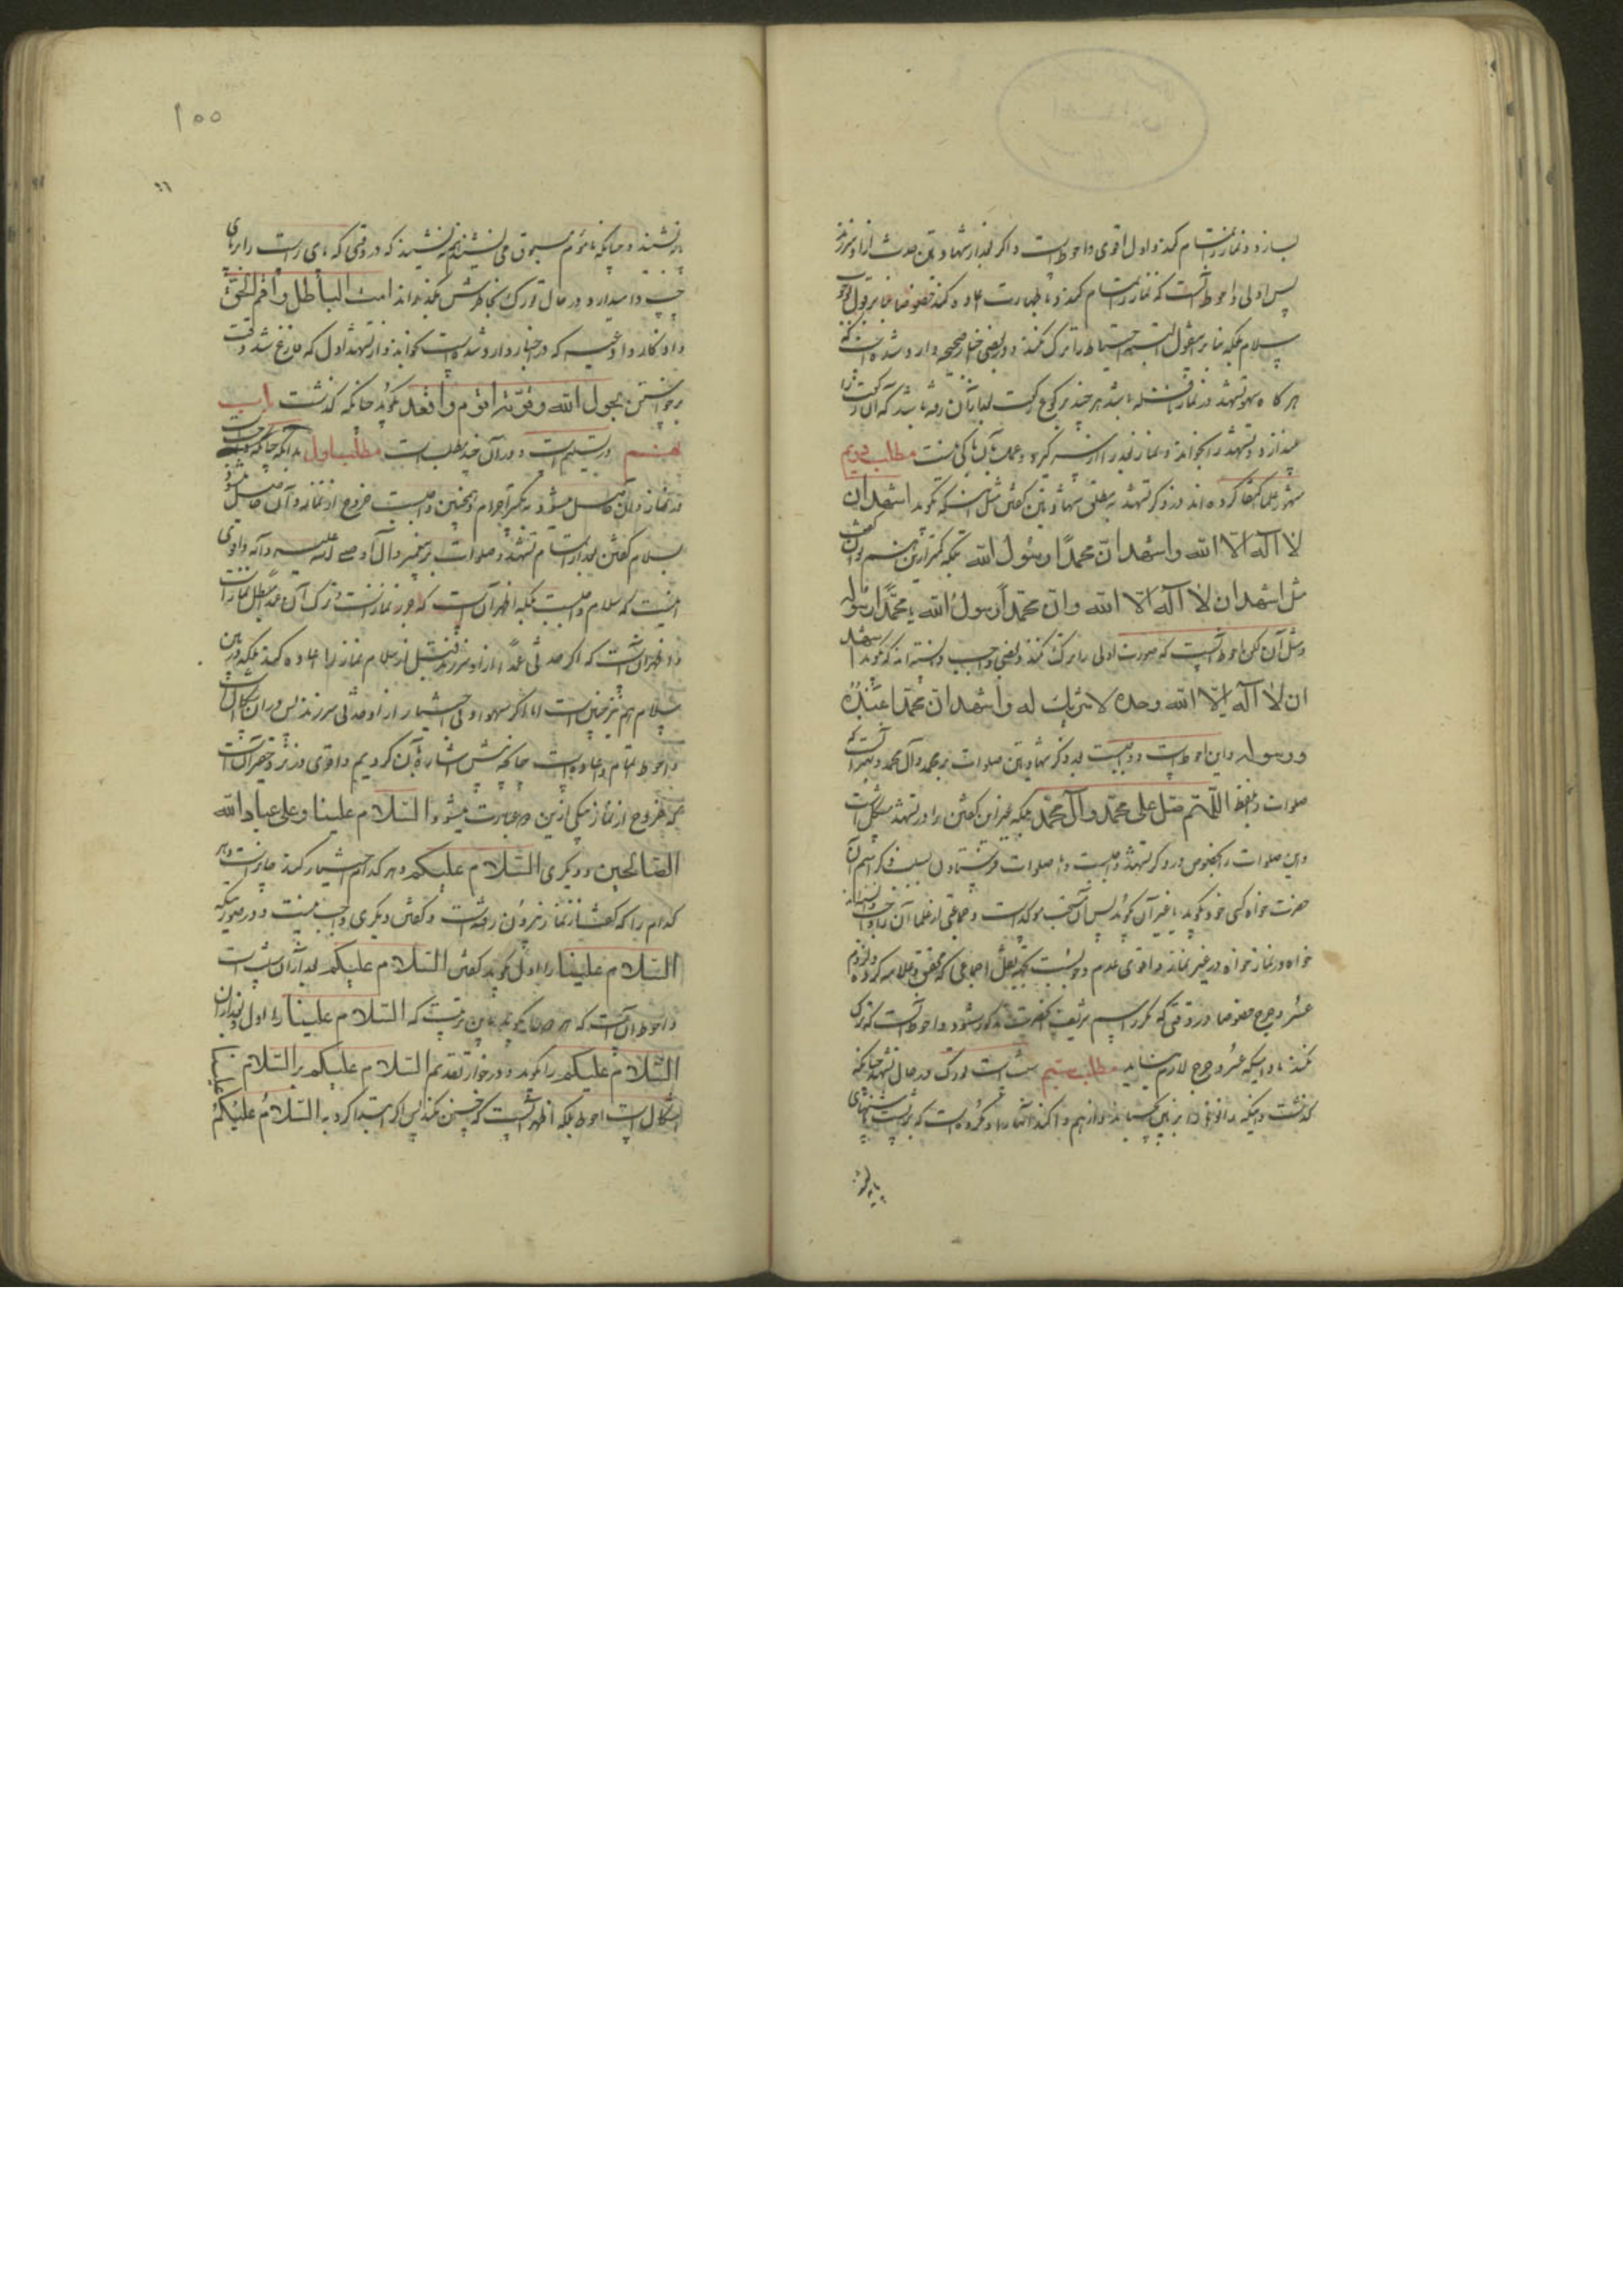 بسازد و نماز را تمام کند و اول اقوی و احوط است و اگر بعد از شهادتین حدث از او سرزند
پس اولی و احوط آنست که نماز را تمام کند و با طهارت اعاده کند خصوصا بنا بر قول بوجوب
سلام بلکه بنا بر قول احتیاط را ترک نکند و در بعضی اخبار صحیحه وارد شده است که
هر گاه سهو تشهد در نماز نافله باشد هر چند بر کوع رکعت بعد از آن رفته باشد که آن رکعت را
بیندازد و تشهد را بخواند و نماز بعد را از سر گیرد و عمل بآن باکی نیست مطلب دویم
مشهور علما اکتفا کرده اند در ذکر تشهد به مطلق شهادتین گفتن مثل اینکه بگوید اشهد ان
لا اله الا الله واشهد ان محمدا رسول الله بلکه کمتر از این هم میتوان گفت
مثل اشهد ان لا اله الا الله وان محمدا رسول الله یا محمدا رسوله
و مثل آن لکن احوط آنست که صورت اولی را ترک نکند و بعضی واجب دانسته اند که بگوید اشهد
ان لا اله الا الله وحده لا شریک له واشهد ان محمدا عبده
ورسوله و این احوط است و واجبست بعد از ذکر شهادتین صلوات بر محمد و آل محمد و بهتر آنست که
صلوات بلفظ اللهم صل علی محمد وآل محمد بلکه غیر این گفتن را در تشهد مشکل است
و این صلوات بالخصوص در ذکر تشهد واجبست و اما صلوات فرستادن بسبب ذکر اسم آن
حضرت خواه کسی خود بگوید یا غیر آن گوید پس آن مستحب موکد است و جماعتی از علما آن را واجب دانسته اند
خواه در نماز خواه در غیر نماز و اقوی عدم وجوبست بجهة نقل اجماعی که محقق و علامه کرده و لزوم
عسر و حرج خصوصا در وقتی که مکرر اسم شریف آنحضرت مذکور شود و احوط آنست که ترک
نکند مادامیکه عسر و حرج لازم نیاید مطلب سیم سنت است تورک در حال تشهد چنانکه
گذشت و اینکه زانوها را بر زمین بچسباند و از هم وا کند آنها را و مکروه است که بر پشت
پایها
۱۵۵
بنشیند و چنانکه ماموم مسبوق می نشیند هم بنشیند که در وقتی که پای راست را بر پای
چپ وا میدارد و در حال تورک بخاطرش بگذراند امت الباطل واقم الحق
و اذکار و ادعیه که در اخبار وارد شده است بخواند و از تشهد اول که فارغ شد وقت
برخواستن بحول الله وقوته اقوم واقعد بگوید چنانکه گذشت باب
هشتم در تسلیم است و در آن چند مطلب است مطلب اول بدانکه چنانکه واجب است
در نماز و آن حاصل میشود به تکبیر احرام و همچنین واجبست خروج از نماز و آن حاصل میشود
بسلام گفتن بعد از اتمام تشهد و صلوات بر پیغمبر و آل او صلی الله علیه و آله و اقوی
اینست که سلام واجبست بلکه اظهر آنست که جزء نماز است و ترک آن عمدا مبطل نماز است
و اظهر آنست که اگر حدثی عمدا از او سرزند قبل از سلام نماز را اعاده کند بلکه در بین
سلام هم نیز چنین است اما اگر سهوا و بی اختیار از او حدثی سرزند پس در آن اشکال است
و احوط اتمام و اعاده است چنانکه پیش اشاره بآن کردیم و اقوی در نزد حقیر آنست
که خروج از نماز بیکی از این دو عبارت میشود السلام علینا وعلی عباد الله
الصالحین و دیگری السلام علیکم و هر کدام اختیار کند جایز است و هر
کدام را که گفت از نماز بیرون رفته است و گفتن دیگری واجب نیست و در صورتیکه
السلام علینا را اول گوید گفتن السلام علیکم بعد از آن سنت است
و احوط آنست که هر دو را بگوید باین ترتیب که السلام علینا را اول و بعد از آن
السلام علیکم را بگوید و در جواز تقدیم السلام علیکم بر السلام علینا
اشکال است احوط بلکه اظهر آنست که چنین نکند پس اگر ابتدا کرد به السلام علیکم